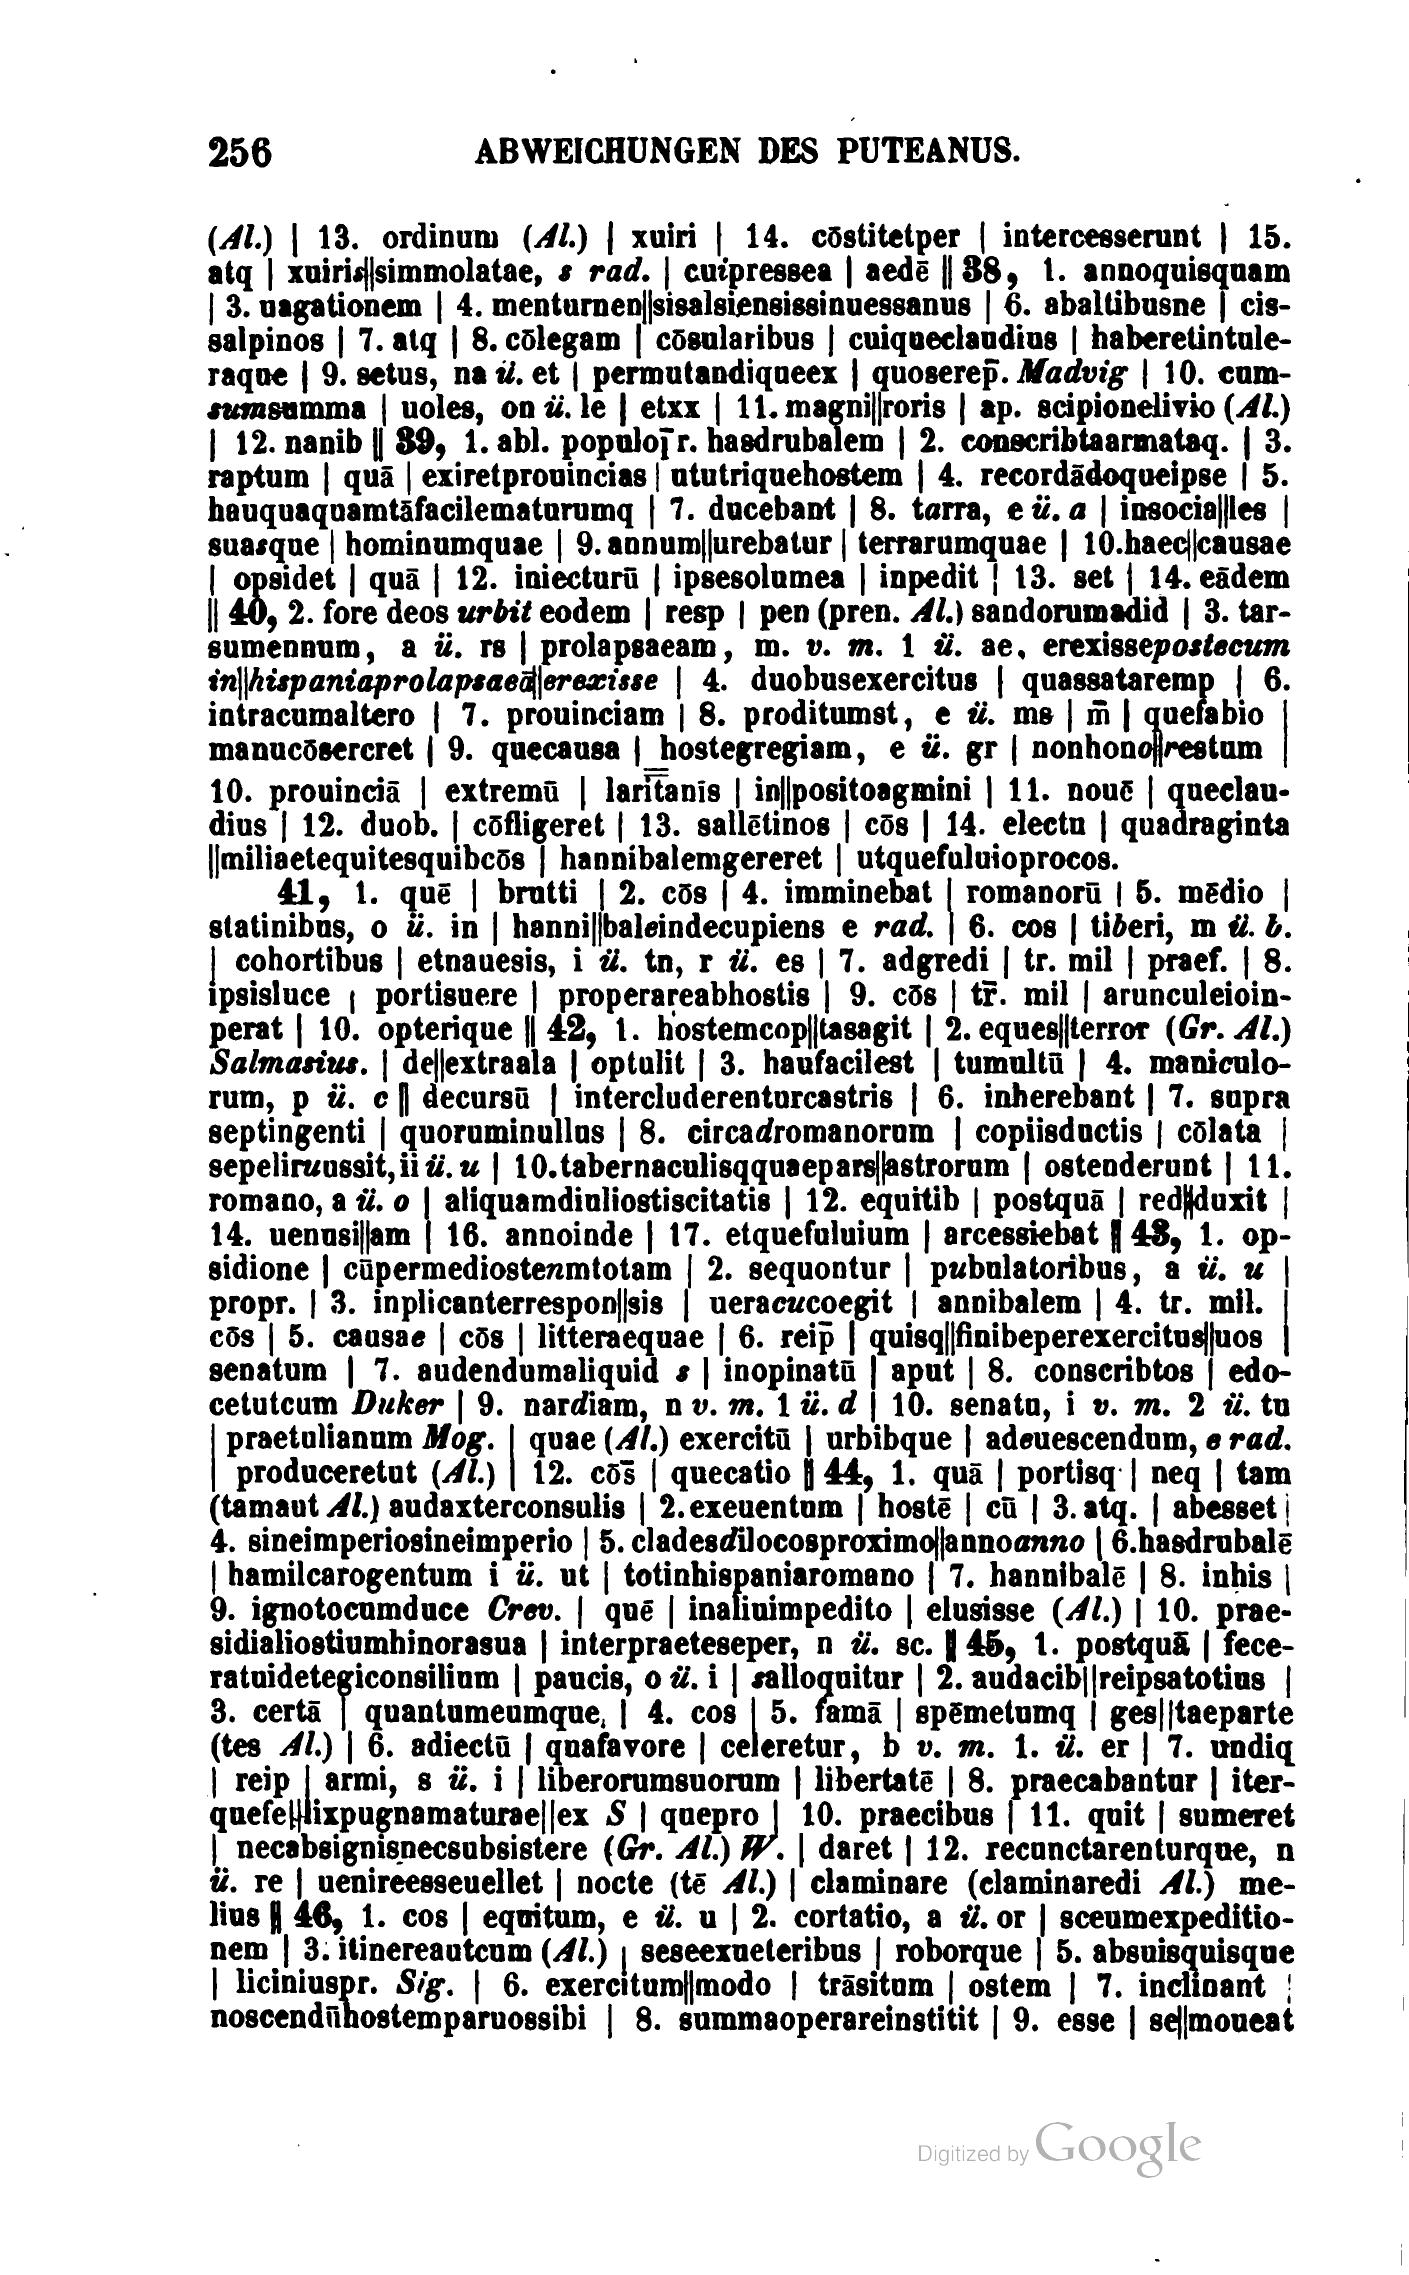 256 ABWEICHUNGEN DES PUTEANUS.
(Al.) | 13. ordinum (Al.) | xuiri | 14. cōstitetper | intercesserunt | 15.
atq | xuiris||simmolatae, s rad. | cuipressea | aedē || 38, 1. annoquisquam
| 3. uagationem | 4. menturnen||sisalsiensissinuessanus | 6. abaltibusne | cis-
salpinos | 7. atq | 8. cōlegam | cōsularibus | cuiqueclaudius | haberetintule-
raque | 9. setus, na ü. et | permutandiqueex | quoserep̄. Madvig | 10. cum-
sumsumma | uoles, on ü. le | etxx | 11. magni||roris | ap. scipionelivio (Al.)
| 12. nanib || 39, 1. abl. populor̄ r. hasdrubalem | 2. conscribtaarmataq. | 3.
raptum | quā | exiretprouincias | ututriquehostem | 4. recordādoqueipse | 5.
hauquaquamtāfacilematurumq | 7. ducebant | 8. tarra, e ü. a | insocia||les |
suasque | hominumquae | 9. annum||urebatur | terrarumquae | 10. haec||causae
| opsidet | quā | 12. iniecturū | ipsesolumea | inpedit | 13. set | 14. eādem
|| 40, 2. fore deos urbit eodem | resp | pen (pren. Al.) sandorumadid | 3. tar-
sumennum, a ü. rs | prolapsaeam, m. v. m. 1 ü. ae, erexissepostecum
in||hispaniaprolapsaeā||erexisse | 4. duobusexercitus | quassataremp | 6.
intracumaltero | 7. prouinciam | 8. proditumst, e ü. ms | m̄ | quefabio |
manucōsercret | 9. quecausa | hostegregiam, e ü. gr | nonhono||restum |
10. prouinciā | extremū | larit̄anis | in||positoagmini | 11. nouē | queclau-
dius | 12. duob. | cōfligeret | 13. sallētinos | cōs | 14. electu | quadraginta
||miliaetequitesquibcōs | hannibalemgereret | utquefuluioprocos.
41, 1. quē | brutti | 2. cōs | 4. imminebat | romanorū | 5. mēdio |
statinibus, o ü. in | hanni||baleindecupiens e rad. | 6. cos | tiberi, m ü. b.
| cohortibus | etnauesis, i ü. tn, r ü. es | 7. adgredi | tr. mil | praef. | 8.
ipsisluce | portisuere | properareabhostis | 9. cōs | tr̄. mil | arunculeioin-
perat | 10. opterique || 42, 1. hostemcop||tasagit | 2. eques||terror (Gr. Al.)
Salmasius. | de||extraala | optulit | 3. haufacilest | tumultū | 4. maniculo-
rum, p ü. c || decursū | intercluderenturcastris | 6. inherebant | 7. supra
septingenti | quoruminullus | 8. circadromanorum | copiisductis | cōlata |
sepeliruussit, ii ü. u | 10. tabernaculisqquaepars||astrorum | ostenderunt | 11.
romano, a ü. o | aliquamdiuliostiscitatis | 12. equitib | postquā | red||duxit |
14. uenusi||am | 16. annoinde | 17. etquefuluium | arcessiebat || 43, 1. op-
sidione | cūpermediostenmtotam | 2. sequontur | pubulatoribus, a ü. u |
propr. | 3. inplicanterrespon||sis | ueracucoegit | annibalem | 4. tr. mil. |
cōs | 5. causae | cōs | litteraequae | 6. reip̄ | quisq||finibeperexercitus||uos |
senatum | 7. audendumaliquid s | inopinatū | aput | 8. conscribtos | edo-
cetutcum Duker | 9. nardiam, n v. m. 1 ü. d | 10. senatu, i v. m. 2 ü. tu
| praetulianum Mog. | quae (Al.) exercitū | urbibque | adeuescendum, e rad.
| produceretut (Al.) | 12. cōs̄ | quecatio || 44, 1. quā | portisq | neq | tam
(tamaut Al.) audaxterconsulis | 2. exeuentum | hostē | cū | 3. atq. | abesset |
4. sineimperiosineimperio | 5. cladesdilocosproximo||annoanno | 6. hasdrubalē
| hamilcarogentum i ü. ut | totinhispaniaromano | 7. hannibalē | 8. inhis |
9. ignotocumduce Crev. | quē | inaliuimpedito | elusisse (Al.) | 10. prae-
sidialiostiumhinorasua | interpraeteseper, n ü. sc. || 45, 1. postquā | fece-
ratuidetegiconsilium | paucis, o ü. i | salloquitur | 2. audacib||reipsatotius |
3. certā | quantumeumque | 4. cos | 5. famā | spēmetumq | ges||taeparte
(tes Al.) | 6. adiectū | quafavore | celeretur, b v. m. 1. ü. er | 7. undiq
| reip | armi, s ü. i | liberorumsuorum | libertatē | 8. praecabantur | iter-
quefe||lixpugnamaturae||ex S | quepro | 10. praecibus | 11. quit | sumeret
| necabsignisnecsubsistere (Gr. Al.) W. | daret | 12. recunctarenturque, n
ü. re | uenireesseuellet | nocte (tē Al.) | claminare (claminaredi Al.) me-
lius || 46, 1. cos | equitum, e ü. u | 2. cortatio, a ü. or | sceumexpeditio-
nem | 3. itinereautcum (Al.) | seseexueteribus | roborque | 5. absuisquisque
| liciniuspr. Sig. | 6. exercitum||modo | trāsitum | ostem | 7. inclinant |
noscendūhostemparuossibi | 8. summaoperareinstitit | 9. esse | se||moueat
Digitized by Google